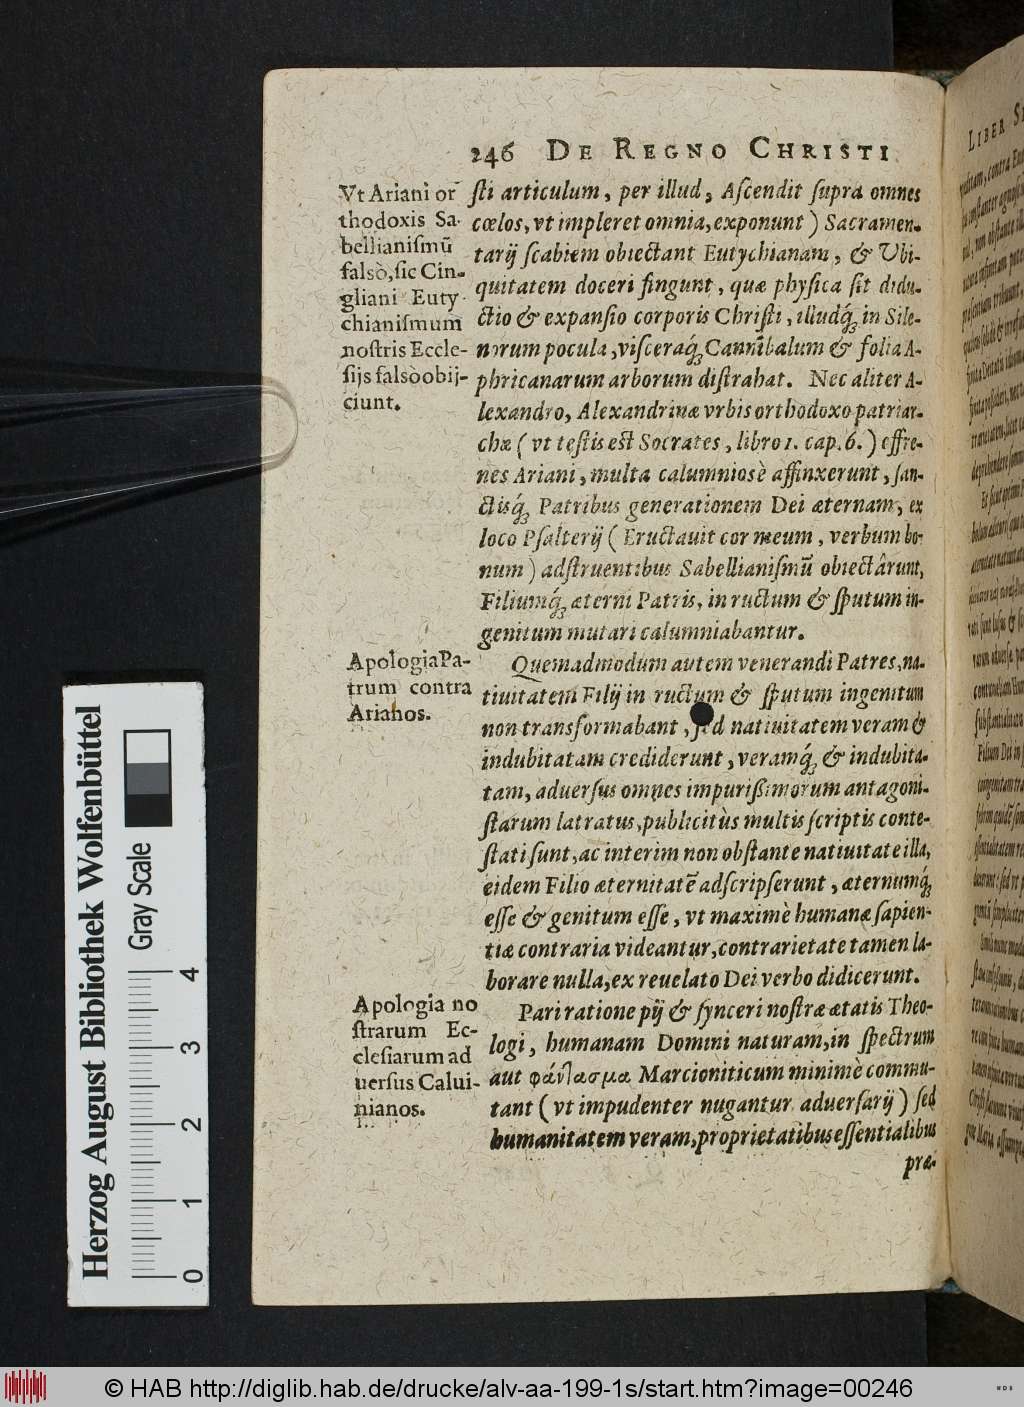 246 DE REGNO CHRISTI
Vt Ariani or
thodoxis Sa-
bellianiſmũ
falsò, ſic Cin-
gliani Euty-
chianiſmum
noſtris Eccle-
ſijs falsò obij-
ciunt.
ſti articulum, per illud, Aſcendit ſupra omnes
cœlos, vt impleret omnia, exponunt) Sacramen-
tarij ſcabiem obiectant Eutychianam, & Vbi-
quitatem doceri fingunt, quæ phyſica ſit didu-
ctio & expanſio corporis Chriſti, illudq́; in Sile-
norum pocula, viſceraq́; Cannibalum & folia A-
phricanarum arborum diſtrahat. Nec aliter A-
lexandro, Alexandrinæ vrbis orthodoxo patriar-
chæ (vt teſtis eſt Socrates, libro 1. cap. 6.) effre-
nes Ariani, multa calumniosè affinxerunt, ſan-
ctisq́; Patribus generationem Dei æternam, ex
loco Pſalterij (Eructauit cor meum, verbum bo-
num) adſtruentibus Sabellianiſmũ obiectârunt,
Filiumq́; æterni Patris, in ructum & ſputum in-
genitum mutari calumniabantur.
Apologia Pa-
trum contra
Arianos.
Quemadmodum autem venerandi Patres, na-
tiuitatem Filij in ructum & ſputum ingenitum
non transformabant, ſed natiuitatem veram &
indubitatam crediderunt, veramq́; & indubita-
tam, aduerſus omnes impurißimorum antagoni-
ſtarum latratus, publicitùs multis ſcriptis conte-
ſtati ſunt, ac interim non obſtante natiuitate illa,
eidem Filio æternitatẽ adſcripſerunt, æternumq́;
eſſe & genitum eſſe, vt maximè humanæ ſapien-
tiæ contraria videantur, contrarietate tamen la-
borare nulla, ex reuelato Dei verbo didicerunt.
Apologia no
ſtrarum Ec-
cleſiarum ad
uerſus Calui-
nianos.
Pari ratione pij & ſynceri noſtræ ætatis Theo-
logi, humanam Domini naturam, in ſpectrum
aut φάντασμα Marcioniticum minimè commu-
tant (vt impudenter nugantur aduerſarij) ſed
humanitatem veram, proprietatibus eſſentialibus
præ-
Herzog August Bibliothek Wolfenbüttel
Gray Scale
0 1 2 3 4
LIBER
© HAB http://diglib.hab.de/drucke/alv-aa-199-1s/start.htm?image=00246